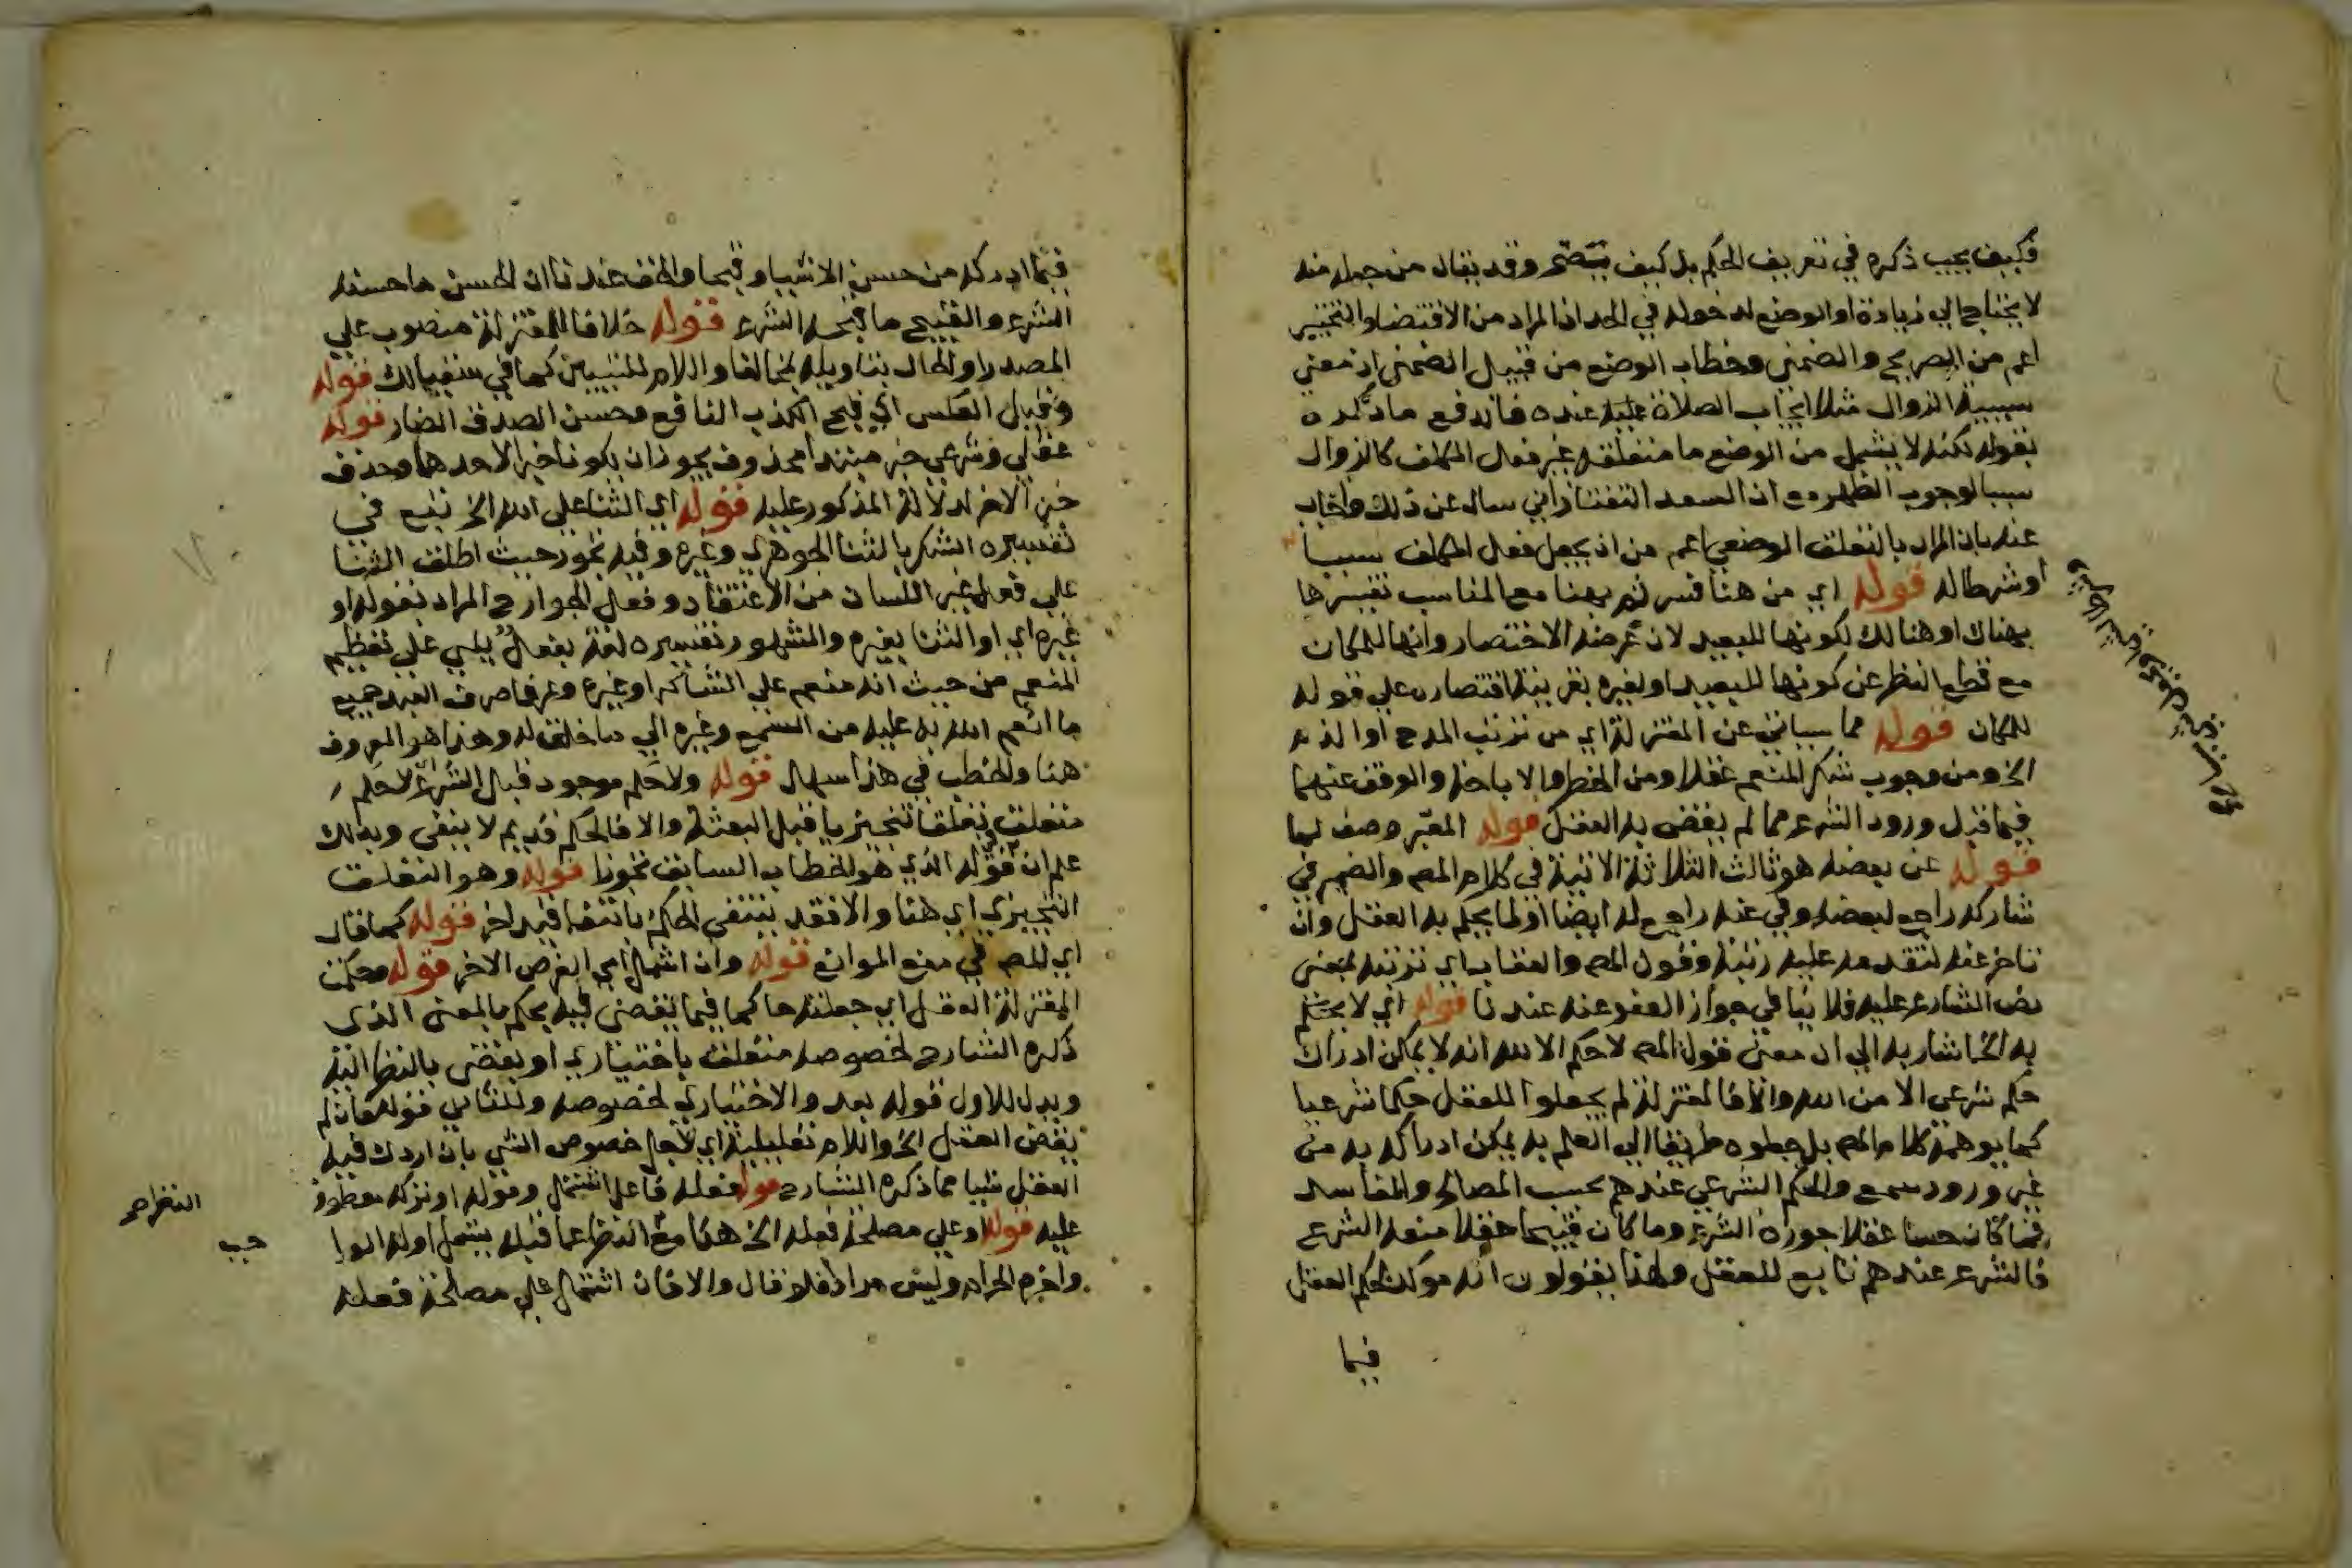 فكيف يجب ذكره في تعريف الحكم بل كيف يصح وقد يقال من جعله منه
لا يحتاج الي زيادة او الوضع لدخوله في الحد اذ المراد من الاقتضا والتخيير
اعم من الصريح والضمني وخطاب الوضع من قبيل الضمني اذ معني
سببية الزوال مثلا ايجاب الصلاة عنده فاندفع ما ذكره
بقوله لكنه لا يشمل من الوضع ما متعلقه غير فعل المكلف كالزوال
سببا لوجوب الظهر مع ان السعد التفتازاني سال عن ذلك واجاب
عنه بان المراد بالتعلق الوضعي اعم من ان يجعل فعل المكلف سببا
او شرطا له قوله اي من هنا فسر ثم بهنا مع المناسب تفسيرها
بهناك او هنالك لكونها للبعيد لان غرضه الاختصار وانها للمكان
مع قطع النظر عن كونها للبعيد او لغيره بقرينة اقتصاره علي قوله
للمكان قوله مما سياتي عن المعتزلة اي من ترتب المدح او الذم
الخ ومن وجوب شكر المنعم عقلا ومن الحظر والاباحة والوقف عنهما
فيما قبل ورود الشرع مما لم يقض به العقل قوله المعبر وصف لما
قوله عن بعضه هو ثالث الثلاثة الاتية في كلام المص والضمير في
شاركه راجع لبعضه وفي عنه راجع له ايضا او لما يحكم به العقل وان
تاخر عنه لتقدمه عليه رتبة وقول المص والعقاب اي ترتبه بمعني
نص الشارع عليه فلا ينافي جواز العفو عنه عندنا قوله اي لا
به الخ اشار به الي ان معني قول المص لا حكم الا لله انه لا يمكن ادراك
حكم شرعي الا من الله والا فالمعتزلة لم يجعلوا للعقل حكما شرعيا
كما يوهمه كلام المص بل جعلوه طريقا الي العلم به يمكن ادراكه به من
غير ورود سمع والحكم الشرعي عندهم بحسب المصالح والمفاسد
فما كان حسنا عقلا جوزه الشرع وما كان قبيحا عقلا منعه الشرع
فالشرع عندهم تابع للعقل ولهذا يقولون انه موكد لحكم العقل
فيما
فيما ادركه من حسن الاشيا وقبحها والحق عندنا ان الحسن ما حسنه
الشرع والقبيح ما قبحه الشرع قوله خلافا للمعتزلة منصوب علي
المصدر او الحال بتاويله بمخالفا واللام للتبيين كما في سقيا لك قوله
وقيل العكس اي قبح الكذب النافع وحسن الصدق الضار قوله
عقلي وشرعي خبر مبتدا محذوف يجوز ان يكونا خبر الاحدهما وحذف
خبر الاخر لدلالة المذكور عليه قوله اي الثنا علي الله الخ تبع في
تفسيره الشكر بالثنا الجوهري وغيره وفيه تجوز حيث اطلق الثنا
علي فعل غير اللسان من الاعتقاد وفعل الجوارح المراد بقوله او
غيره اي او الثنا بغيره والمشهور تفسيره لغة بفعل ينبي علي تعظيم
المنعم من حيث انه منعم علي الشاكر او غيره وعرفا صرف العبد جميع
ما انعم الله به عليه من السمع وغيره الي ما خلق له وهذا هو المعروف
هنا والخطب في هذا سهل قوله ولا حكم موجود قبل الشرع اي لا حكم
متعلق تعلقا تنجيزيا قبل البعثة والا فالحكم قديم لا ينتفي وبذلك
علم ان في قوله الذي هو الخطاب السابق تجوزا قوله وهو التعلق
التنجيزي اي هنا والا فقد ينتفي الحكم بانتفا قيد اخر قوله كما قال
اي المص في منع الموانع قوله وان اشتمل اي الغرض الاخر قوله وحكمت
المعتزلة العقل اي جعلته حاكما فيما يقضي فيه بحكم بالمعني الذي
ذكره الشارح لخصوصه متعلق باختياري او يقضي بالنظر اليه
ويدل للاول قوله بعد والاختياري لخصوصه وللثاني قوله فان لم
يقض العقل الخ واللام تعليلية اي لاجل خصوص الشي بان ادرك فيه
العقل شيا مما ذكره الشارح قوله فعله فاعل اشتمل وقوله او تركه معطوف
عليه قوله او علي مصلحة فعله الخ هذا مع النظر عما قبله يشمل اوله الواجب
واخره الحرام وليس مرادا فلو قال والا فان اشتمل علي مصلحة فعله